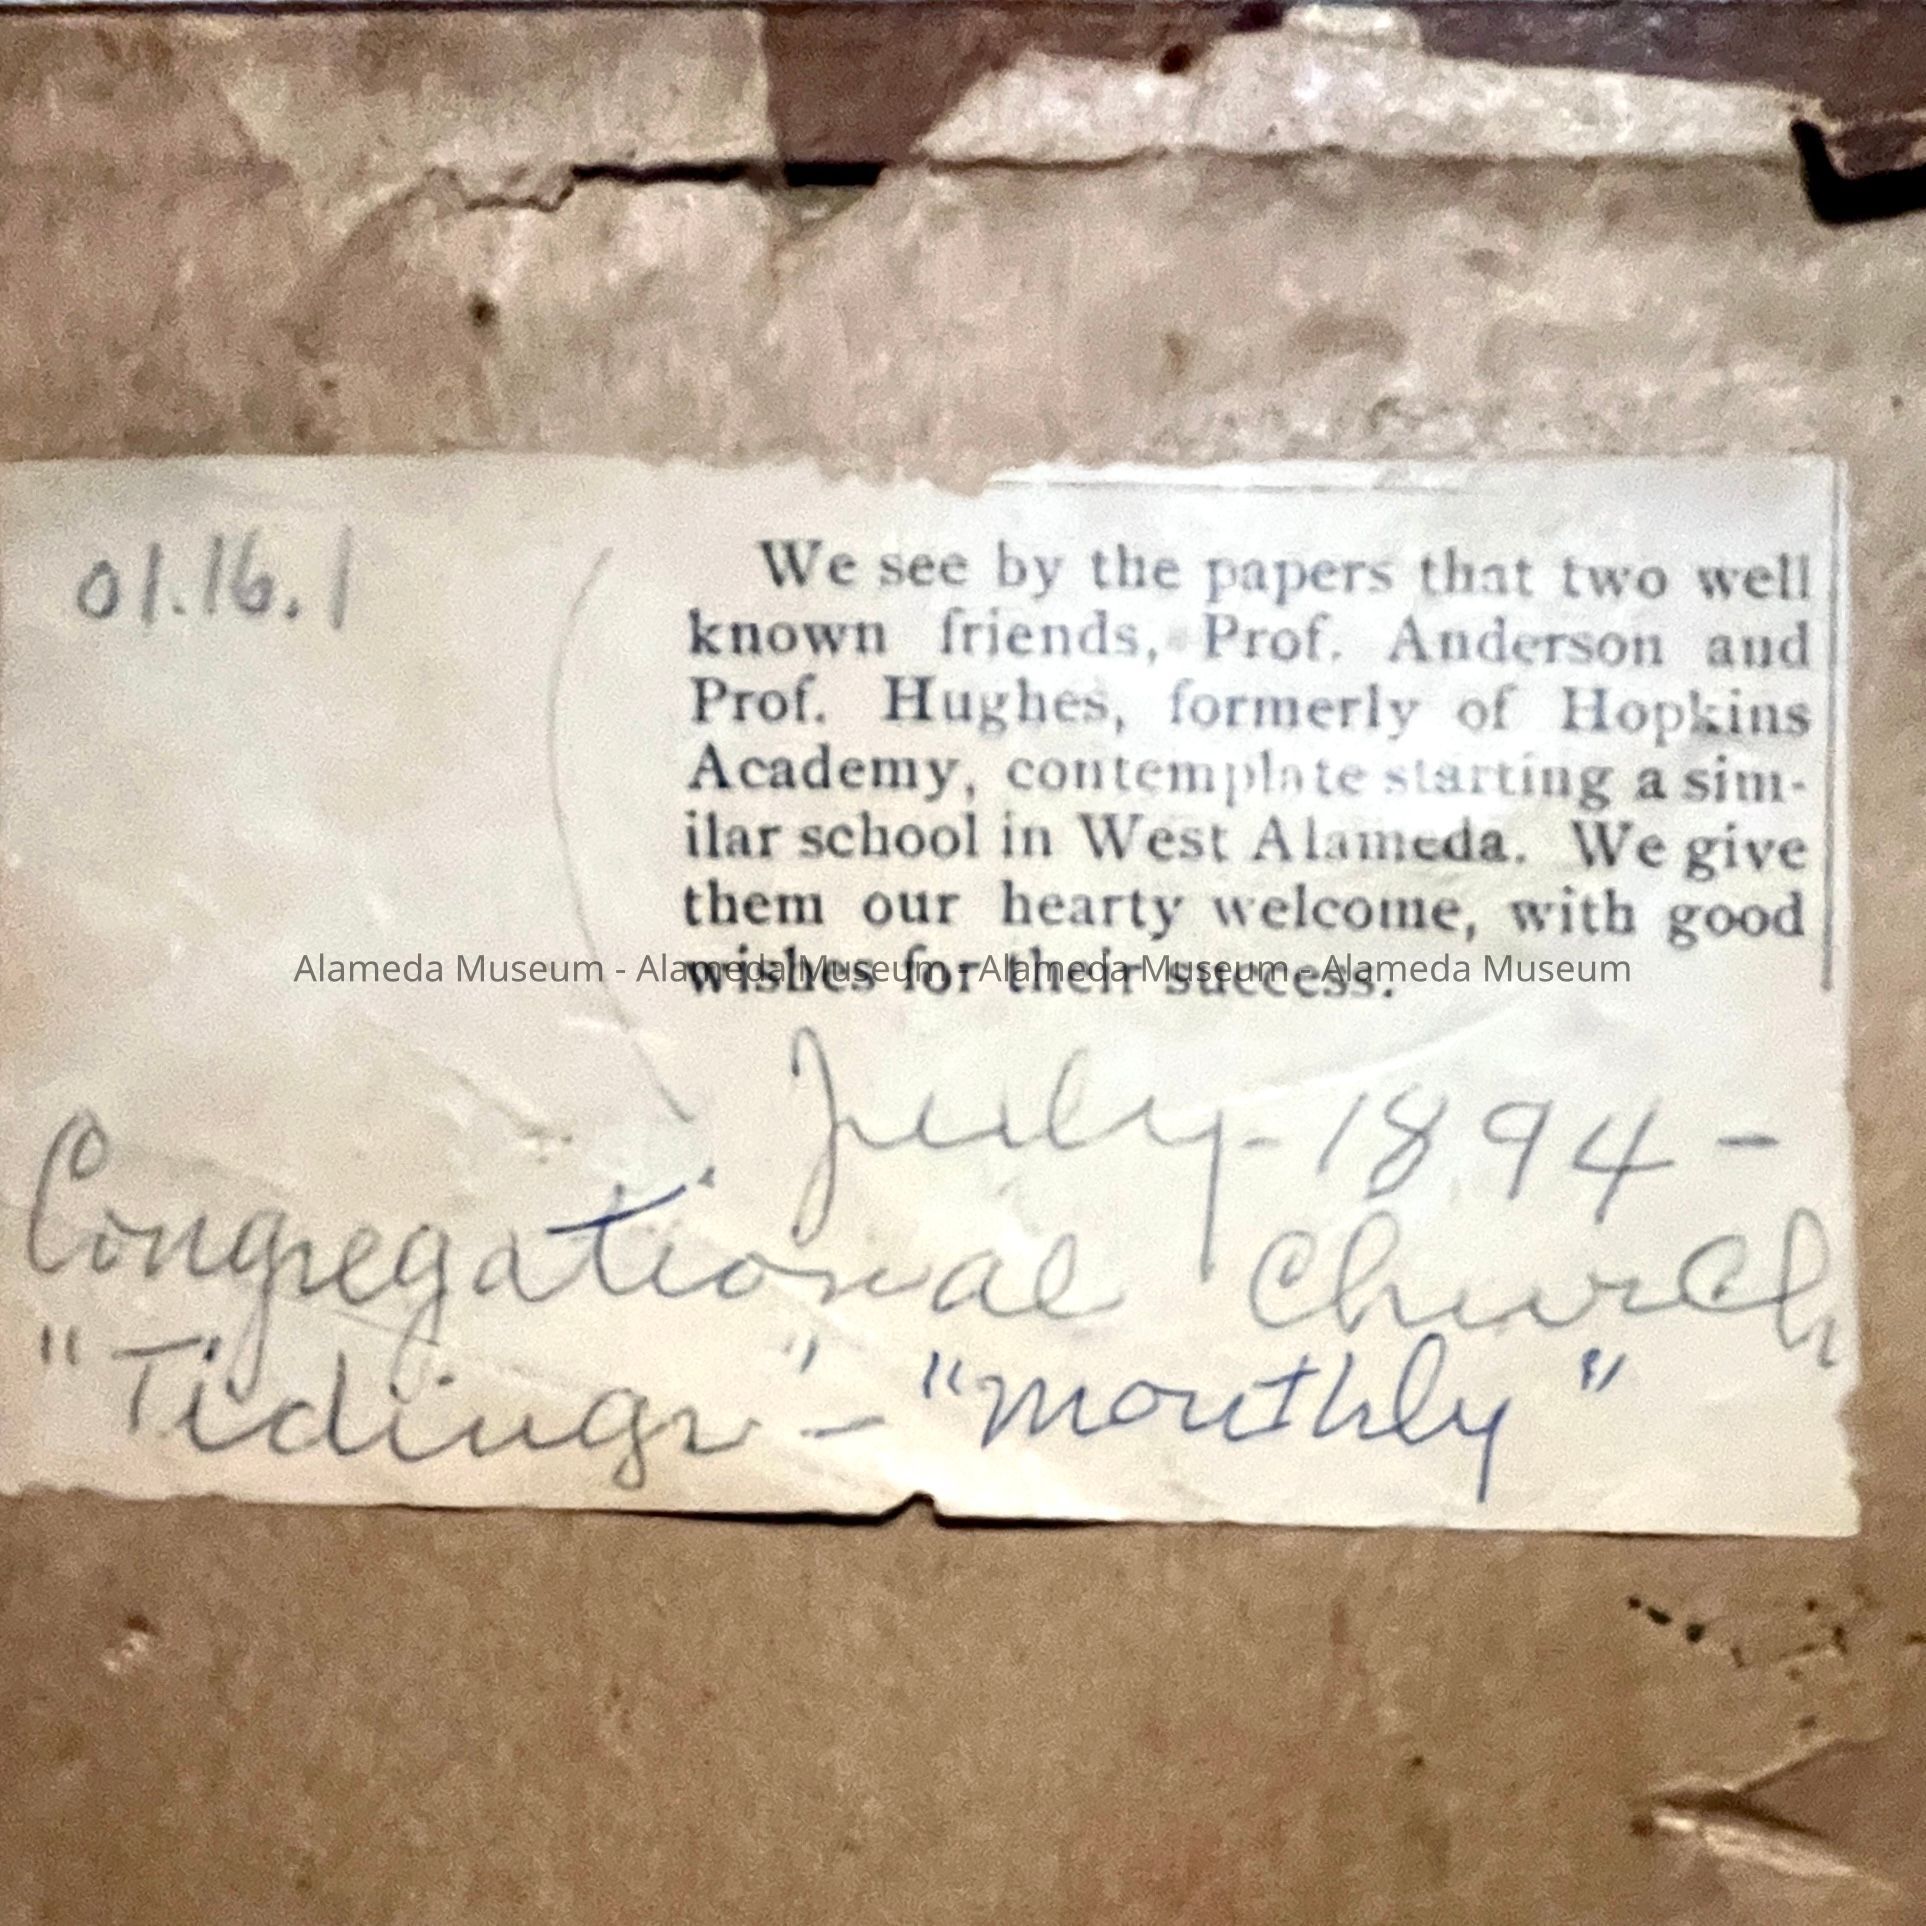 01.16.1
We see by the papers that two well
known friends, Prof. Anderson and
Prof. Hughes, formerly of Hopkins
Academy, contemplate starting a sim-
ilar school in West Alameda. We give
them our hearty welcome, with good
wishes for their success.
Alameda Museum - Alameda Museum - Alameda Museum - Alameda Museum
July - 1894 -
Congregational Church
"Tidings" - "Monthly"